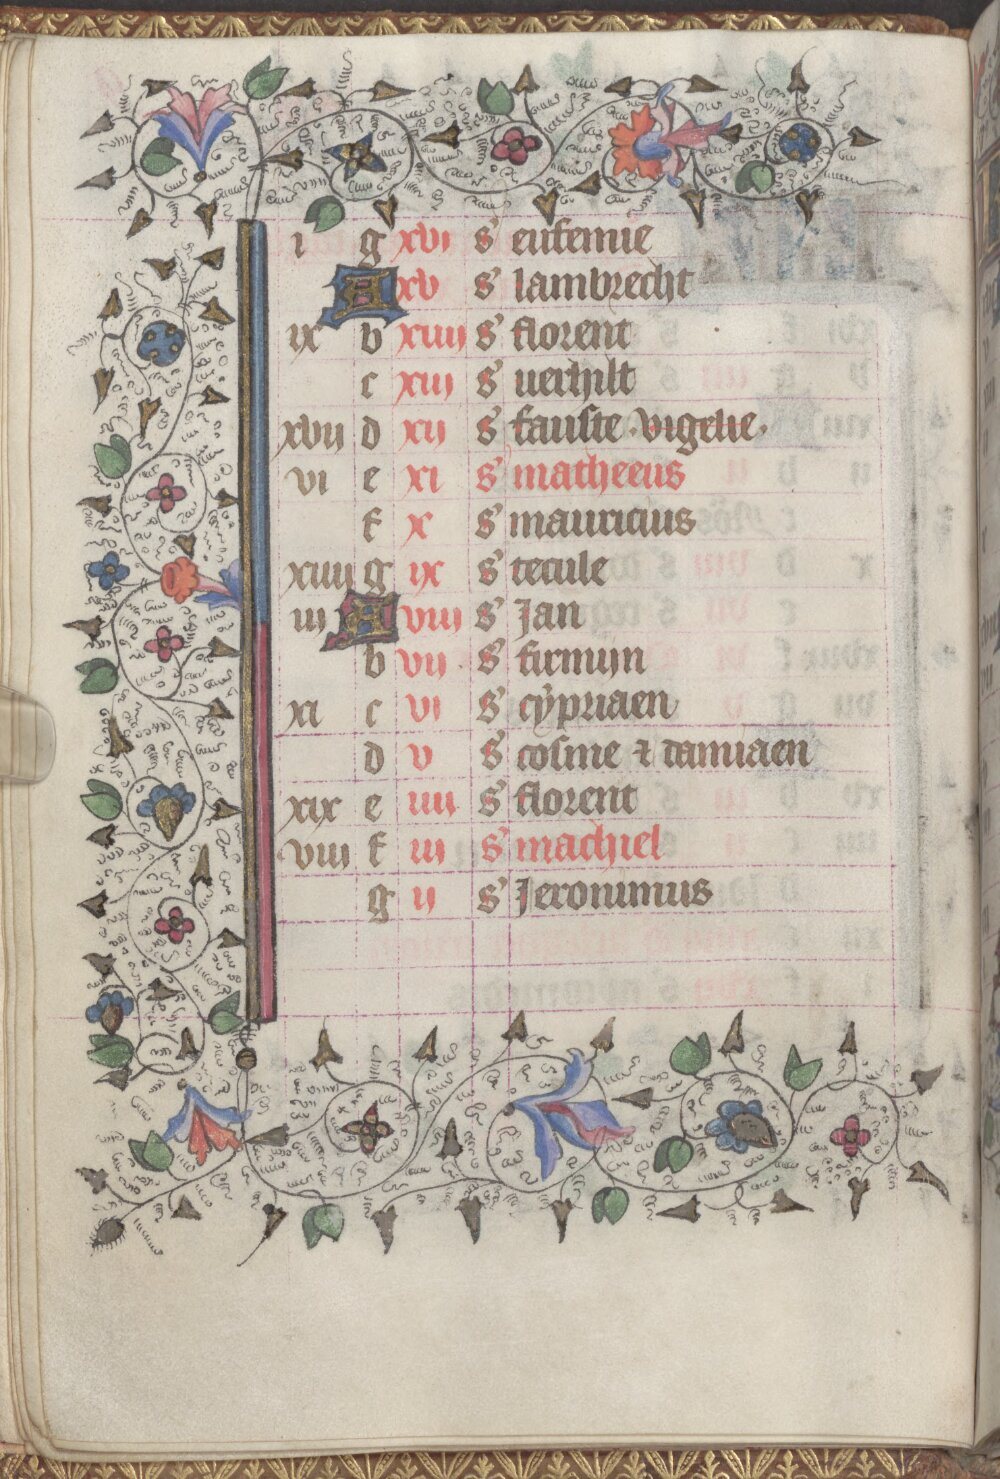 i g xvi s' eufemie
A xv s' lambrecht
ix b xiiii s' florent
c xiii s' uerhilt
xvii d xii s' fauste · vigelie ·
vi e xi s' matheeus
f x s' mauricius
xiiii g ix s' tecule
iii A viii s' Jan
b vii s' firmijn
xi c vi s' cÿpriaen
d v s' cosme ⁊ damiaen
xix e iiii s' florent
viii f iii s' machiel
g ii s' Jeronimus